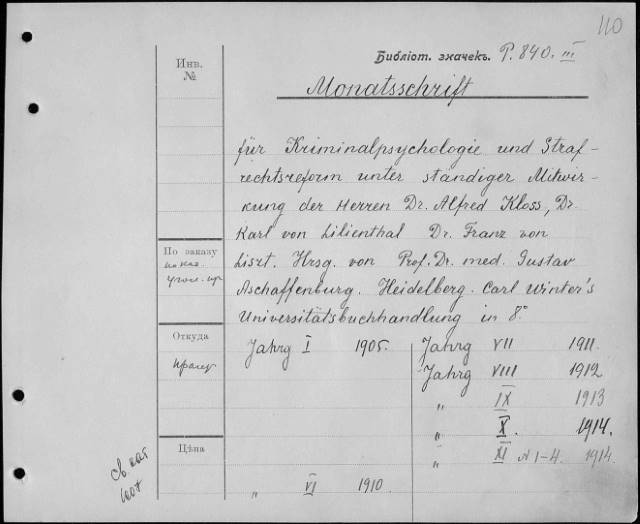 110
Библіот. значекъ. P. 840. III
Инв.
№
Monatsschrift
für Kriminalpsychologie und Straf-
rechtsreform unter ständiger Mitwir-
kung der Herren Dr. Alfred Kloss, Dr.
Karl von Lilienthal Dr. Franz von
Liszt. Hrsg. von Prof. Dr. med. Gustav
Aschaffenburg. Heidelberg. Carl Winter's
Universitätsbuchhandlung in 8°
По заказу
Откуда
Цѣна
Jahrg I 1905.
„ VI 1910
Jahrg VII 1911.
Jahrg VIII 1912
„ IX 1913
„ X. 1914.
„ XI № 1-4. 1914.